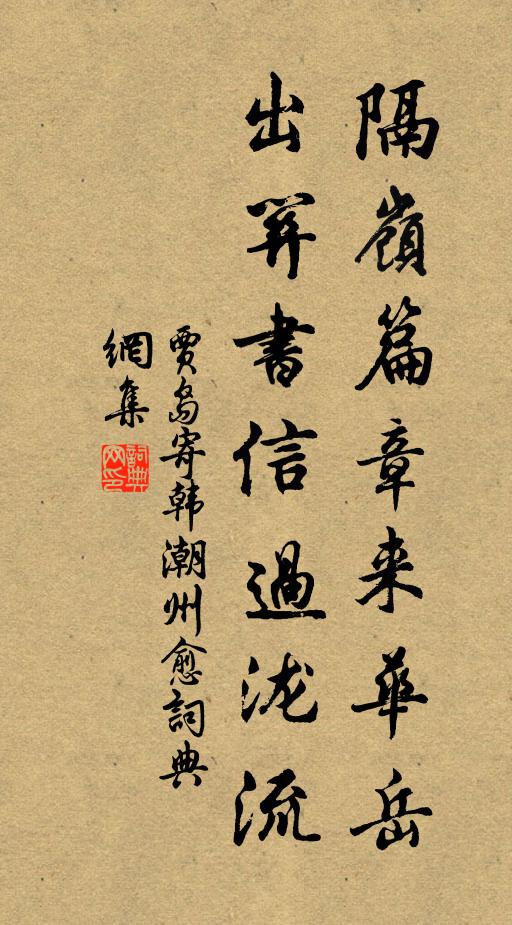 隔嶺篇章来華岳
出關書信過泷流
賈島寄韩潮州愈詞典
網集
詞典網印